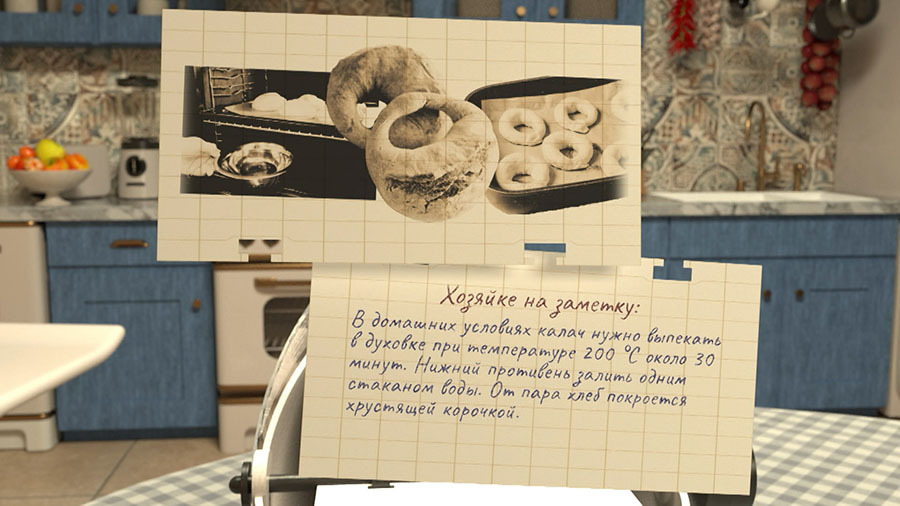 Хозяйке на заметку:
В домашних условиях калач нужно выпекать
в духовке при температуре 200 °С около 30
минут. Нижний противень залить одним
стаканом воды. От пара хлеб покроется
хрустящей корочкой.